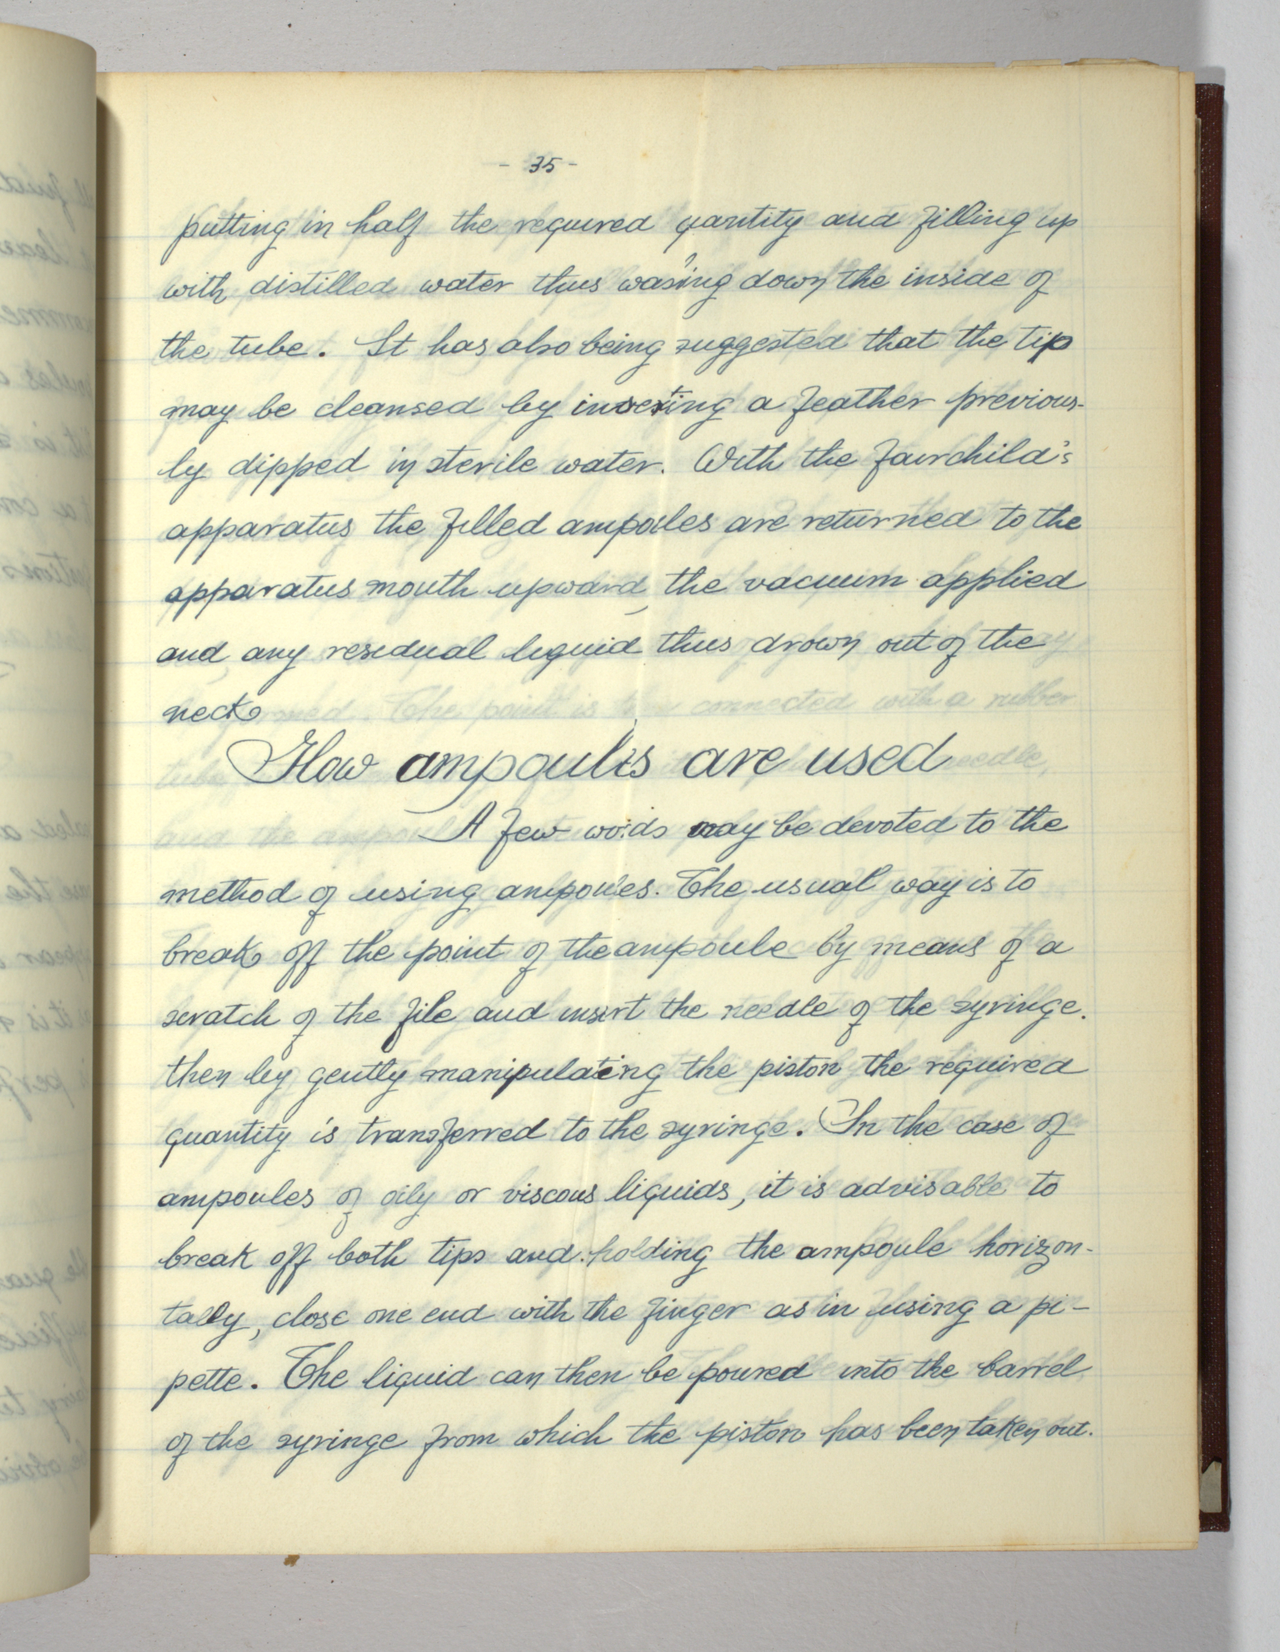 - 35 -
putting in half the required quantity and filling up
with distilled water thus wasing down the inside of
the tube. It has also being suggested that the tip
may be cleansed by inserting a feather previous-
ly dipped in sterile water. With the Fairchild's
apparatus the filled ampoules are returned to the
apparatus mouth upward, the vacuum applied
and any residual liquid thus drown out of the
neck
How ampoules are used
A few words may be devoted to the
method of using ampoules. The usual way is to
break off the point of the ampoule by means of a
scratch of the file and insert the needle of the syringe.
then by gently manipulating the piston the required
quantity is transferred to the syringe. In the case of
ampoules of oily or viscous liquids, it is advisable to
break off both tips and holding the ampoule horizon-
tally, close one end with the finger as in using a pi-
pette. The liquid can then be poured into the barrel
of the syringe from which the piston has been taken out.